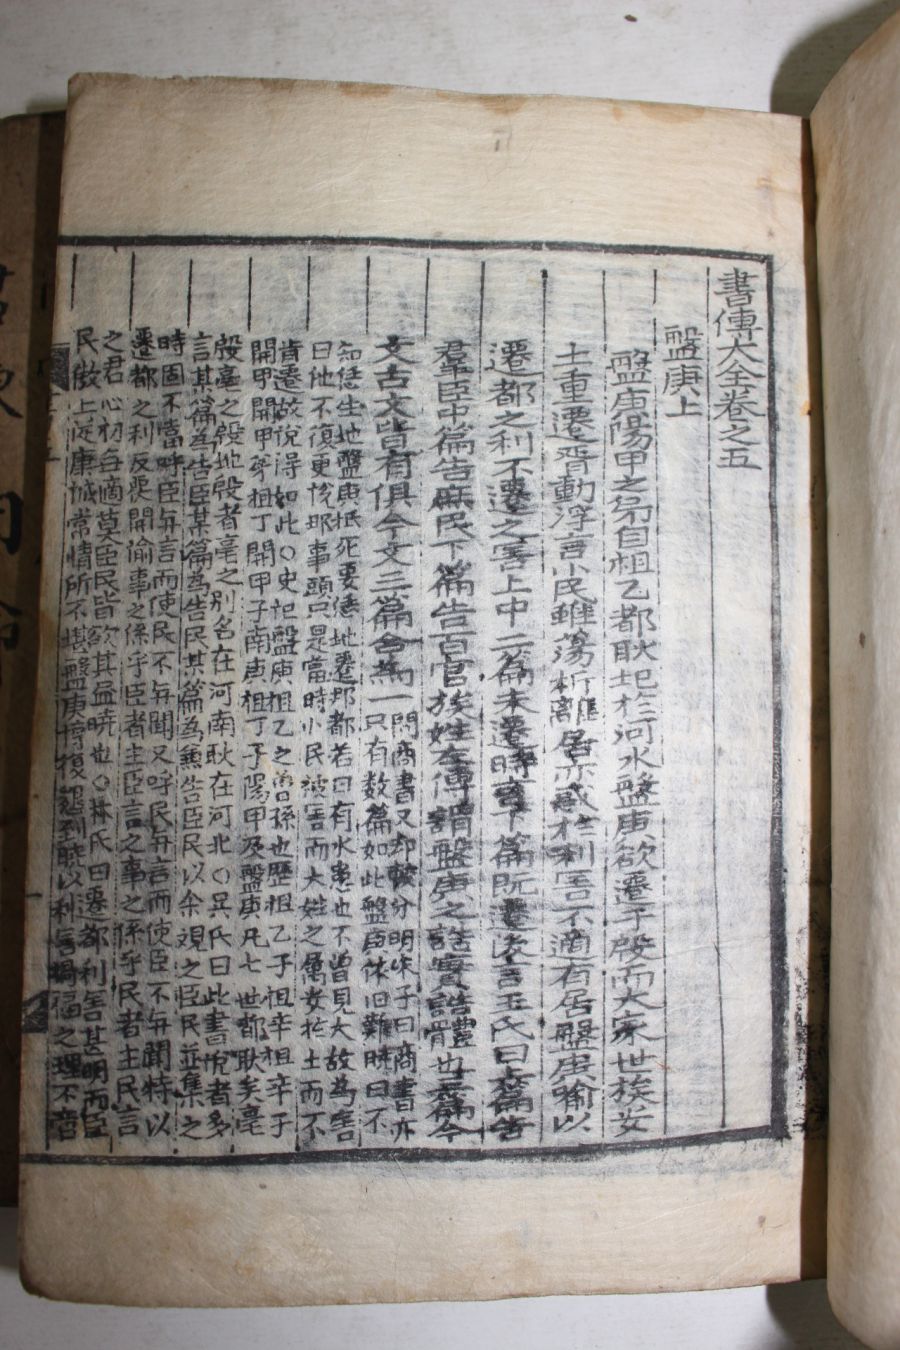 書傳大全卷之五
盤庚上
盤庚陽甲之弟自祖乙都耿圮於河水盤庚欲遷于殷而大家世族安
土重遷胥動浮言小民雖蕩析離居亦惑於利害不適有居盤庚喻以
遷都之利不遷之害上中二篇未遷時言下篇旣遷後言王氏曰上篇告
羣臣中篇告庶民下篇告百官族姓左傳謂盤庚之誥實誥體也三篇今
文古文皆有但今文三篇合爲一
問商書又却較分明朱子曰商書亦
只有数篇如此盤庚依旧難曉曰不
知怎生地盤庚抵死要恁地遷那都若曰有水患也不曾見大故為害
曰他不復更說那事頭只是當時小民被害而大姓之屬安於土而不
肯遷故說得如此○史記盤庚祖乙之曾孫也歷祖乙子祖辛祖辛子
開甲開甲弟祖丁開甲子南庚祖丁子陽甲及盤庚凡七世都耿矣亳
殷亳之殷地殷者亳之别名在河南耿在河北○吳氏曰此書說者多
言某篇為告臣某篇為告民某篇為兼告臣民以余觀之臣民並集之
時固不當呼臣与言而使民不与聞又呼民与言而使臣不与聞特以
遷都之利反覆開諭事之係乎臣者主臣言之事之係乎民者主民言
之君心初無適莫臣民皆欲其益曉也○林氏曰遷都利害甚明而臣
民傲上從康